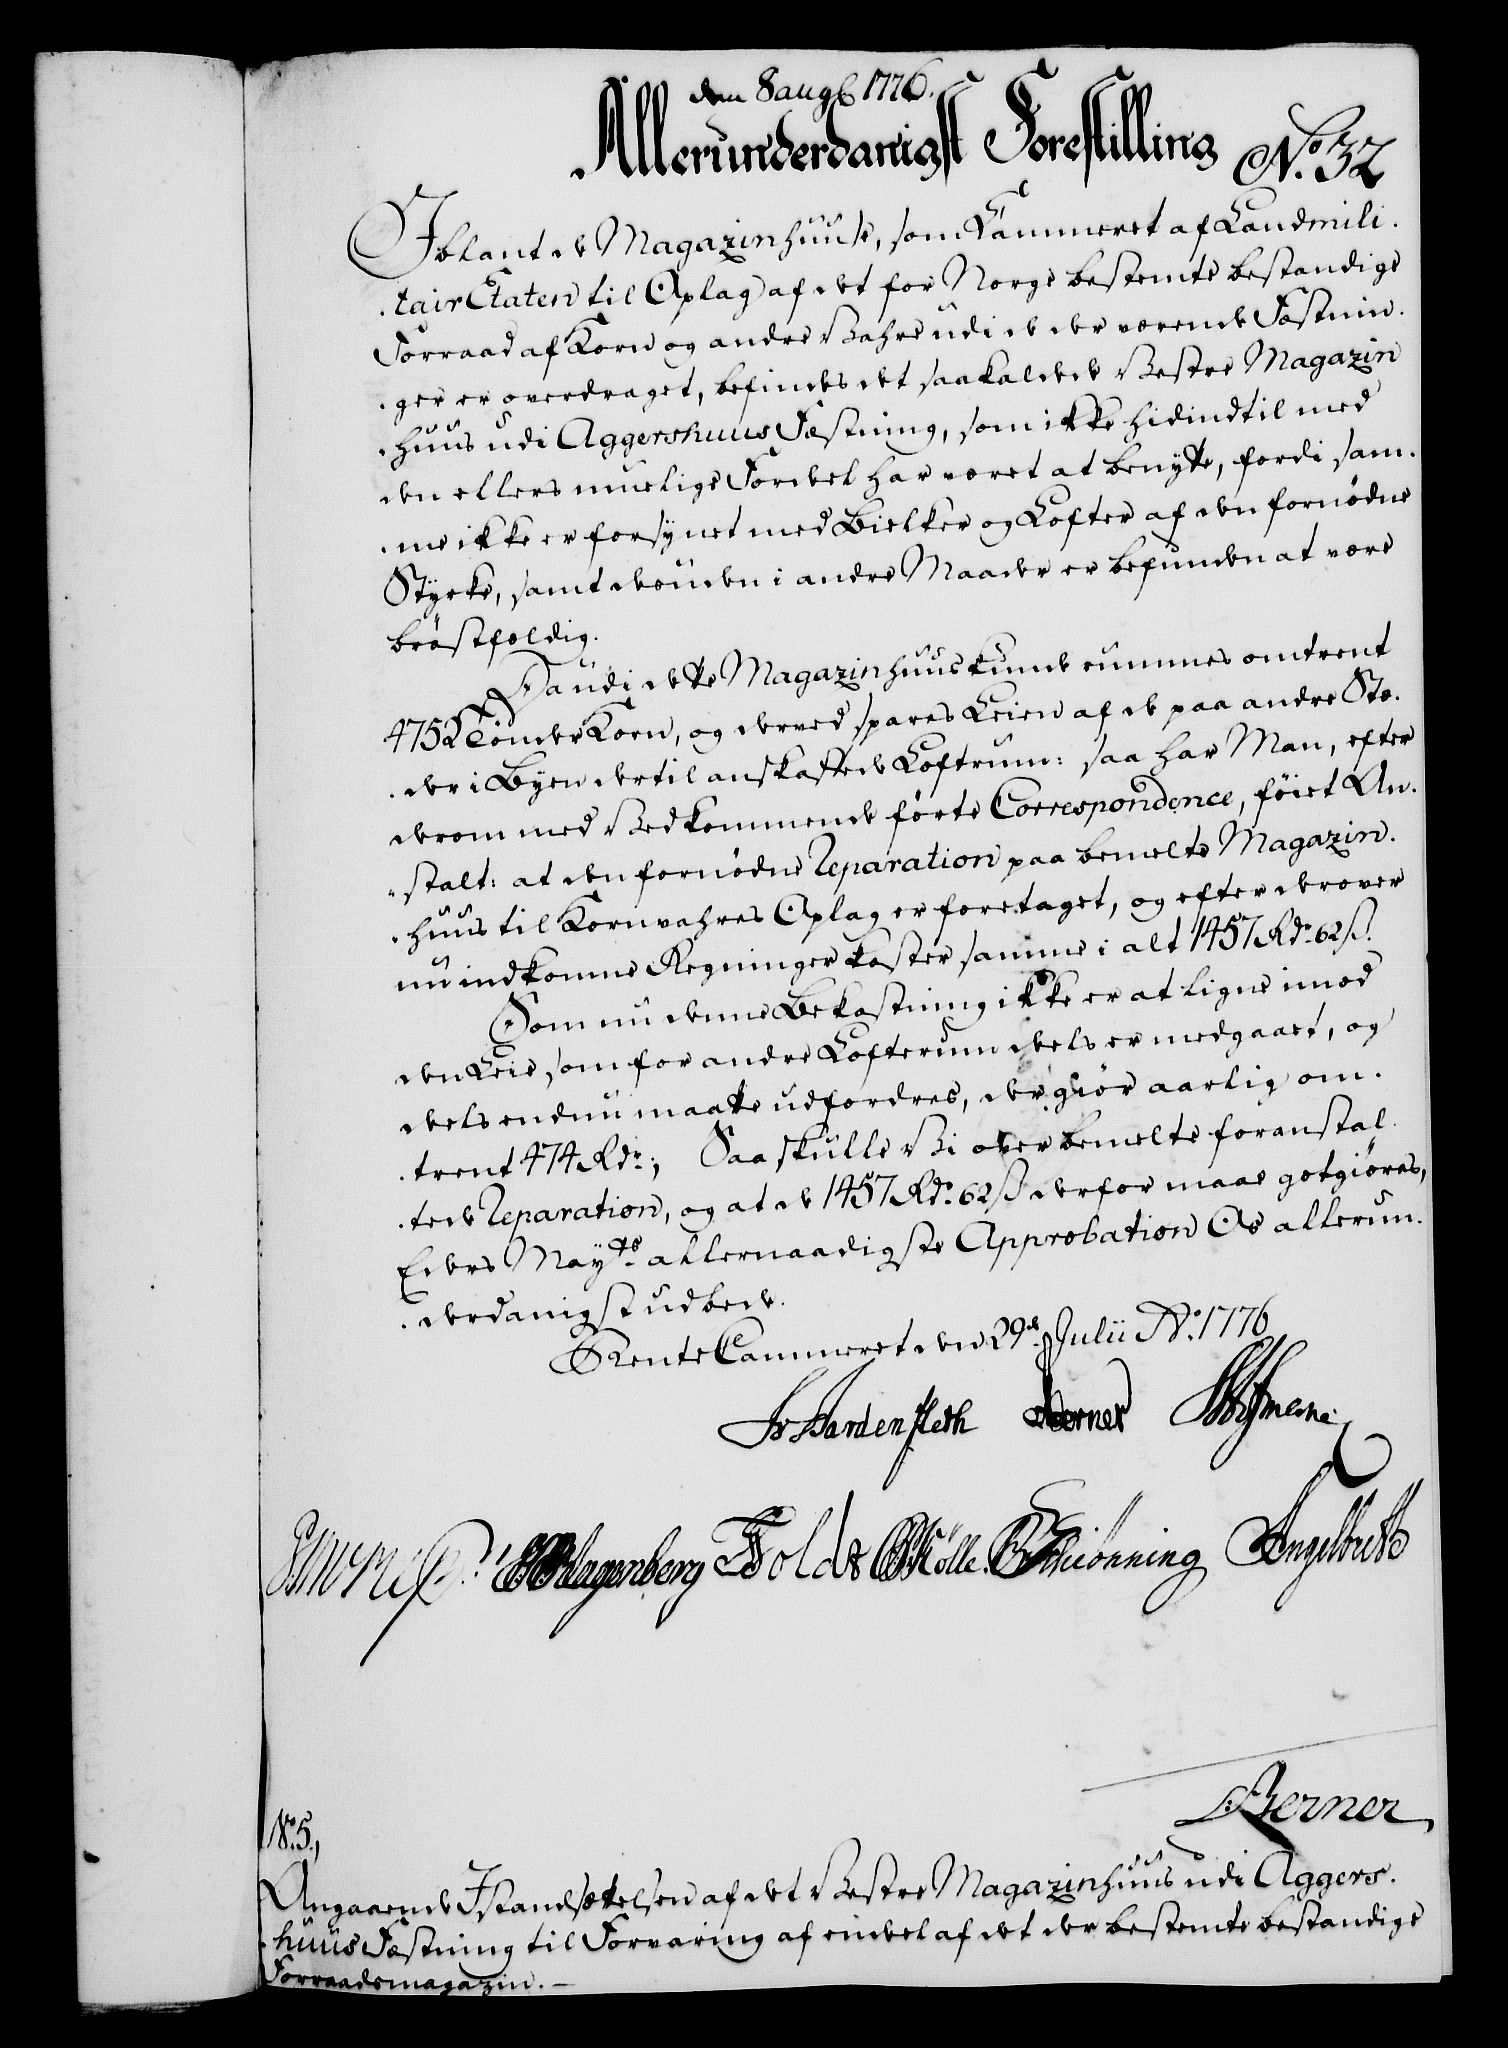 den 8 aug 1776.
Allerunderdanigst Forestilling
No. 32
Iblant de Magazinhuuse, som Cammeret af Landmili-
-tair Etaten til Oplag af det for Norge bestemte bestandige
Forraad af Korn og andre Vahre udi de der værende Fæstnin-
-ger er overdraget, befindes det saakaldede Vestre Magazin
-huus udi Aggershuus Fæstning, som ikke hidindtil med
den ellers muelige Fordel har været at benytte, fordi sam-
-me ikke er forsynet med Bielker og Lofter af den fornødne
Styrke, samt desuden i andre Maader er befunden at være
brøstfældig.
Da udi dette Magazinhuus kunde rummes omtrent
4752 Tønder Korn, og derved spares Leien af de paa andre Stæ-
-der i Byen dertil anskaffede Loftrum: saa har Man, efter
derom med Vedkommende førte Correspondence, føiet An-
-stalt: at den fornødne Reparation paa bemelte Magazin-
-huus til Kornvahres Oplag er foretaget, og efter derover
nu indkomne Regninger koster samme i alt 1457 Rdr. 62 s.
Som nu denne Bekostning ikke er at ligne imod
den Leie, som for andre Lofterum dels er medgaaet, og
dels endnu maatte udfordres, der giør aarlig om-
-trent 474 Rdr.; Saa skulle Vi over bemelte foranstal-
-tede Reparation, og at de 1457 Rdr. 62 s derfor maae gotgiøres,
Eders Mayts. allernaadigste Approbation Os allerun-
-derdanigst udbede.
RenteCammeret den 29de Julii Ao. 1776
Hardenfleth Berner
Klagenberg Fold Mölle. Schiönning Engelbrett
Berner
No. 5.,
Angaaende Istandsættelsen af det Vestre Magazinhuus udi Aggers-
-huus Fæstning til Forvaring af endel af det der bestemte bestandige
Forraadsmagazin. –